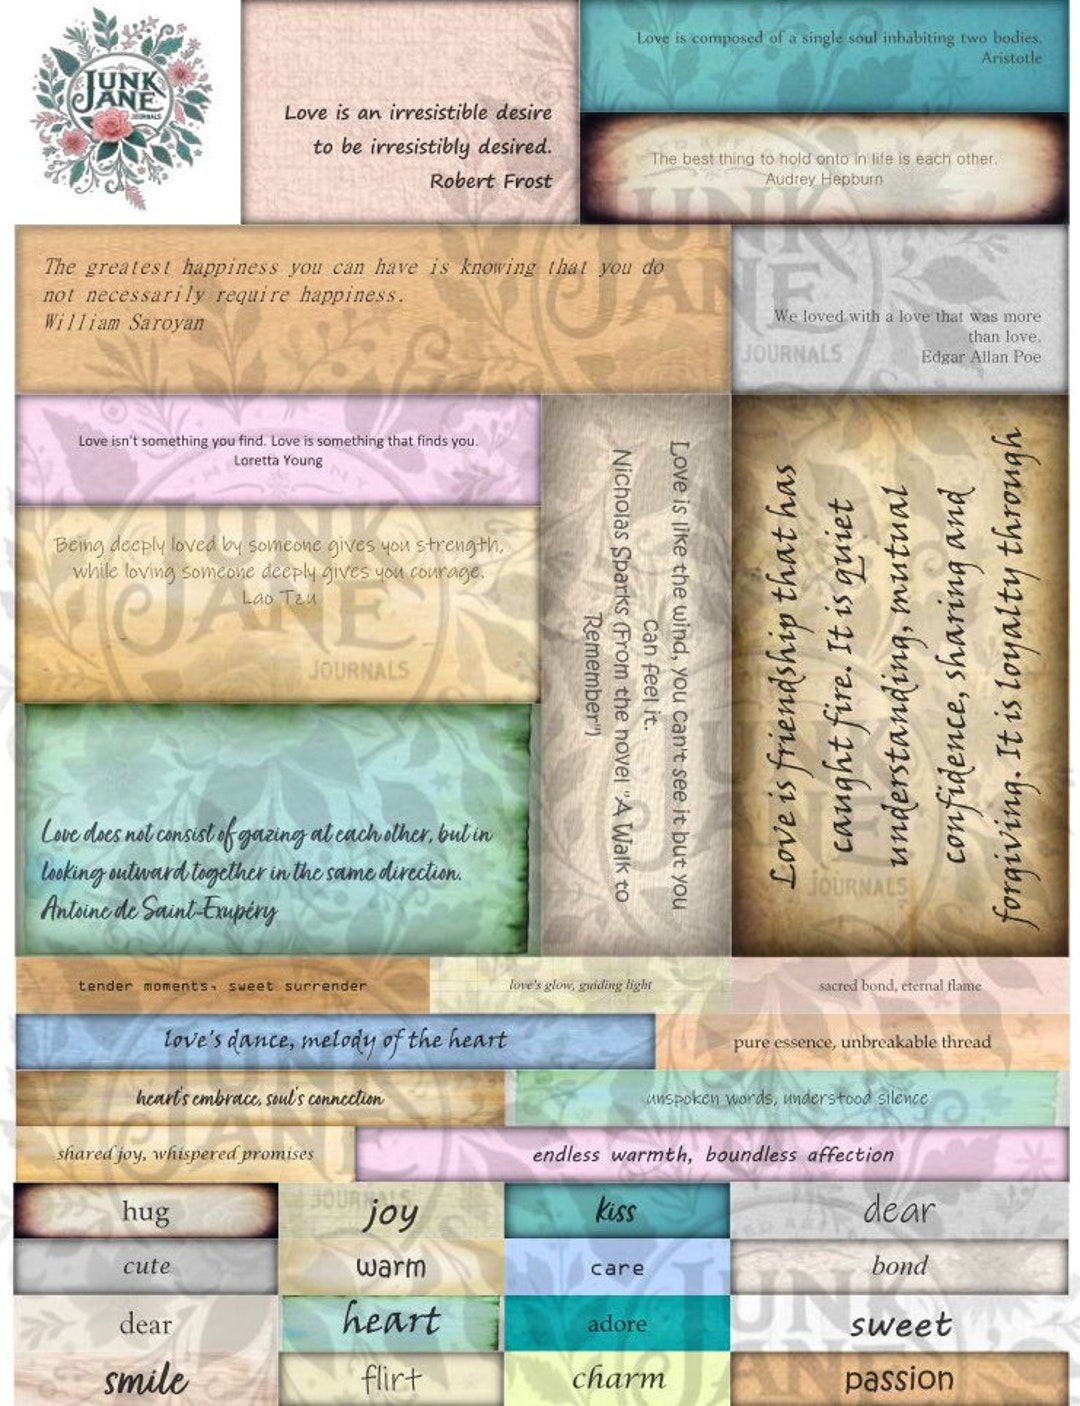 JUNK
JANE
JOURNALS
Love is an irresistible desire
to be irresistibly desired.
Robert Frost
Love is composed of a single soul inhabiting two bodies.
Aristotle
The best thing to hold onto in life is each other.
Audrey Hepburn
The greatest happiness you can have is knowing that you do
not necessarily require happiness.
William Saroyan
We loved with a love that was more
than love.
Edgar Allan Poe
JUNK
JANE
JOURNALS
Love isn't something you find. Love is something that finds you.
Loretta Young
Being deeply loved by someone gives you strength,
while loving someone deeply gives you courage.
Lao Tzu
JUNK
JANE
JOURNALS
Love does not consist of gazing at each other, but in
looking outward together in the same direction.
Antoine de Saint-Exupéry
Love is like the wind, you can't see it but you
can feel it.
Nicholas Sparks (From the novel "A Walk to
Remember")
Love is friendship that has
caught fire. It is quiet
understanding, mutual
confidence, sharing and
forgiving. It is loyalty through
JUNK
JANE
JOURNALS
tender moments, sweet surrender
love's glow, guiding light
sacred bond, eternal flame
love's dance, melody of the heart
pure essence, unbreakable thread
heart's embrace, soul's connection
unspoken words, understood silence
shared joy, whispered promises
endless warmth, boundless affection
JUNK
JANE
JOURNALS
hug
joy
kiss
dear
cute
warm
care
bond
dear
heart
adore
sweet
smile
flirt
charm
passion
JUNK
JANE